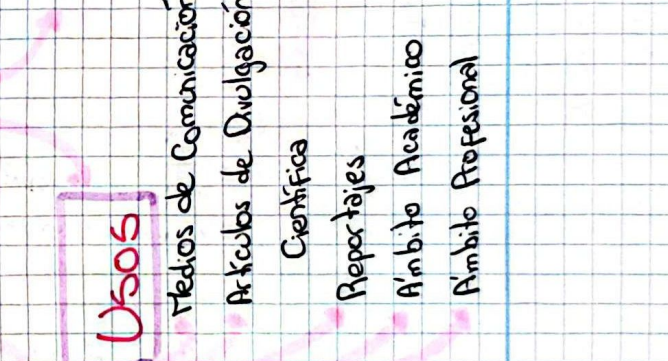 USOS
Medios de Comunicación
Artículos de Divulgación
Científica
Reportajes
Ámbito Académico
Ámbito Profesional